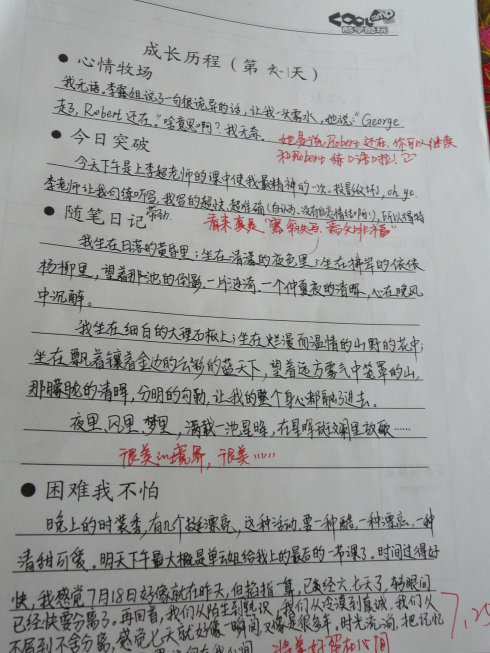 COOL camp
酷学酷玩
成长历程（第六天）
● 心情牧场
我无语。李露姐说了一句很诡异的话，让我一头雾水，他说：“George
走了，Robert还在。”啥意思啊？我无奈。
她是说Robert还在，你可以继续
和Robert练口语啦！
● 今日突破
今天下午是上李超老师的课中使我最精神的一次，投影仪坏，oh ye.
李老师让我们练听写，我写的超快，超准确（自认为，没有自恋情结啊！），所以得特
带劲。
看来真是“塞翁失马，焉知非福”
● 随笔日记
我坐在日落的黄昏里；坐在清落的夜色里；坐在拼岸的依依
杨柳里，望着那池的倒影、一片涟漪、一个仲夏夜的清晖，心在晚风
中沉醉。
我坐在细白的大理石板上；坐在烂漫而温情的山野的花中；
坐在飘着镶着金边的云彩的蓝天下，望着远方雾气中笼罩的山，
那朦胧的清晖，分明的勾勒，让我的整个身心都融了进去。
夜里、风里、梦里，满载一池星晖，在星晖斑斓里放歌……
很美的境界，很美……
● 困难我不怕
晚上的时装秀，有几个挺漂亮，这种活动要一种酷、一种漂亮、一种
清甜可爱。明天下午最大概是单云姐给我上的最后的一节课了。时间过得好
快，我感觉7月18日好像就在昨天，但掐指一算，已委经六七天了，转眼间
已经快要分离了。再回首，我们从陌生到熟识，我们从冷漠到真诚，我们从
不屑到不舍分离，感觉七天就好像一瞬间，又像是很多年，时光流淌，把记忆
7,25
将美好留在心间